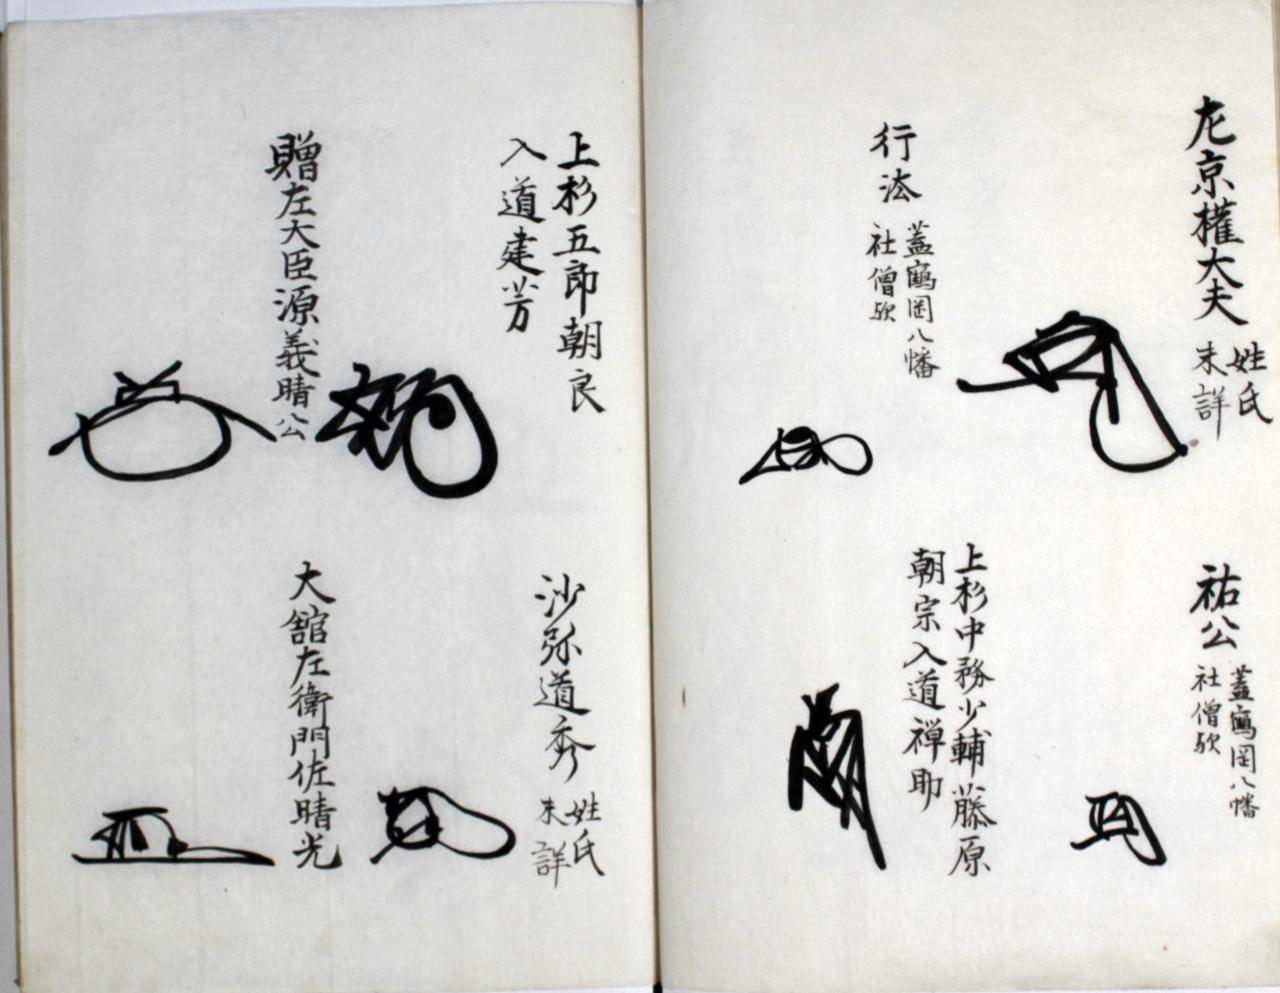 左京權大夫
姓氏
未詳
祐公
蓋鶴岡八幡
社僧歟
行泫
蓋鶴岡八幡
社僧歟
上杉中務少輔藤原
朝宗入道禅助
上杉五郎朝良
入道建芳
沙弥道秀
姓氏
未詳
贈左大臣源義晴公
大舘左衛門佐晴光